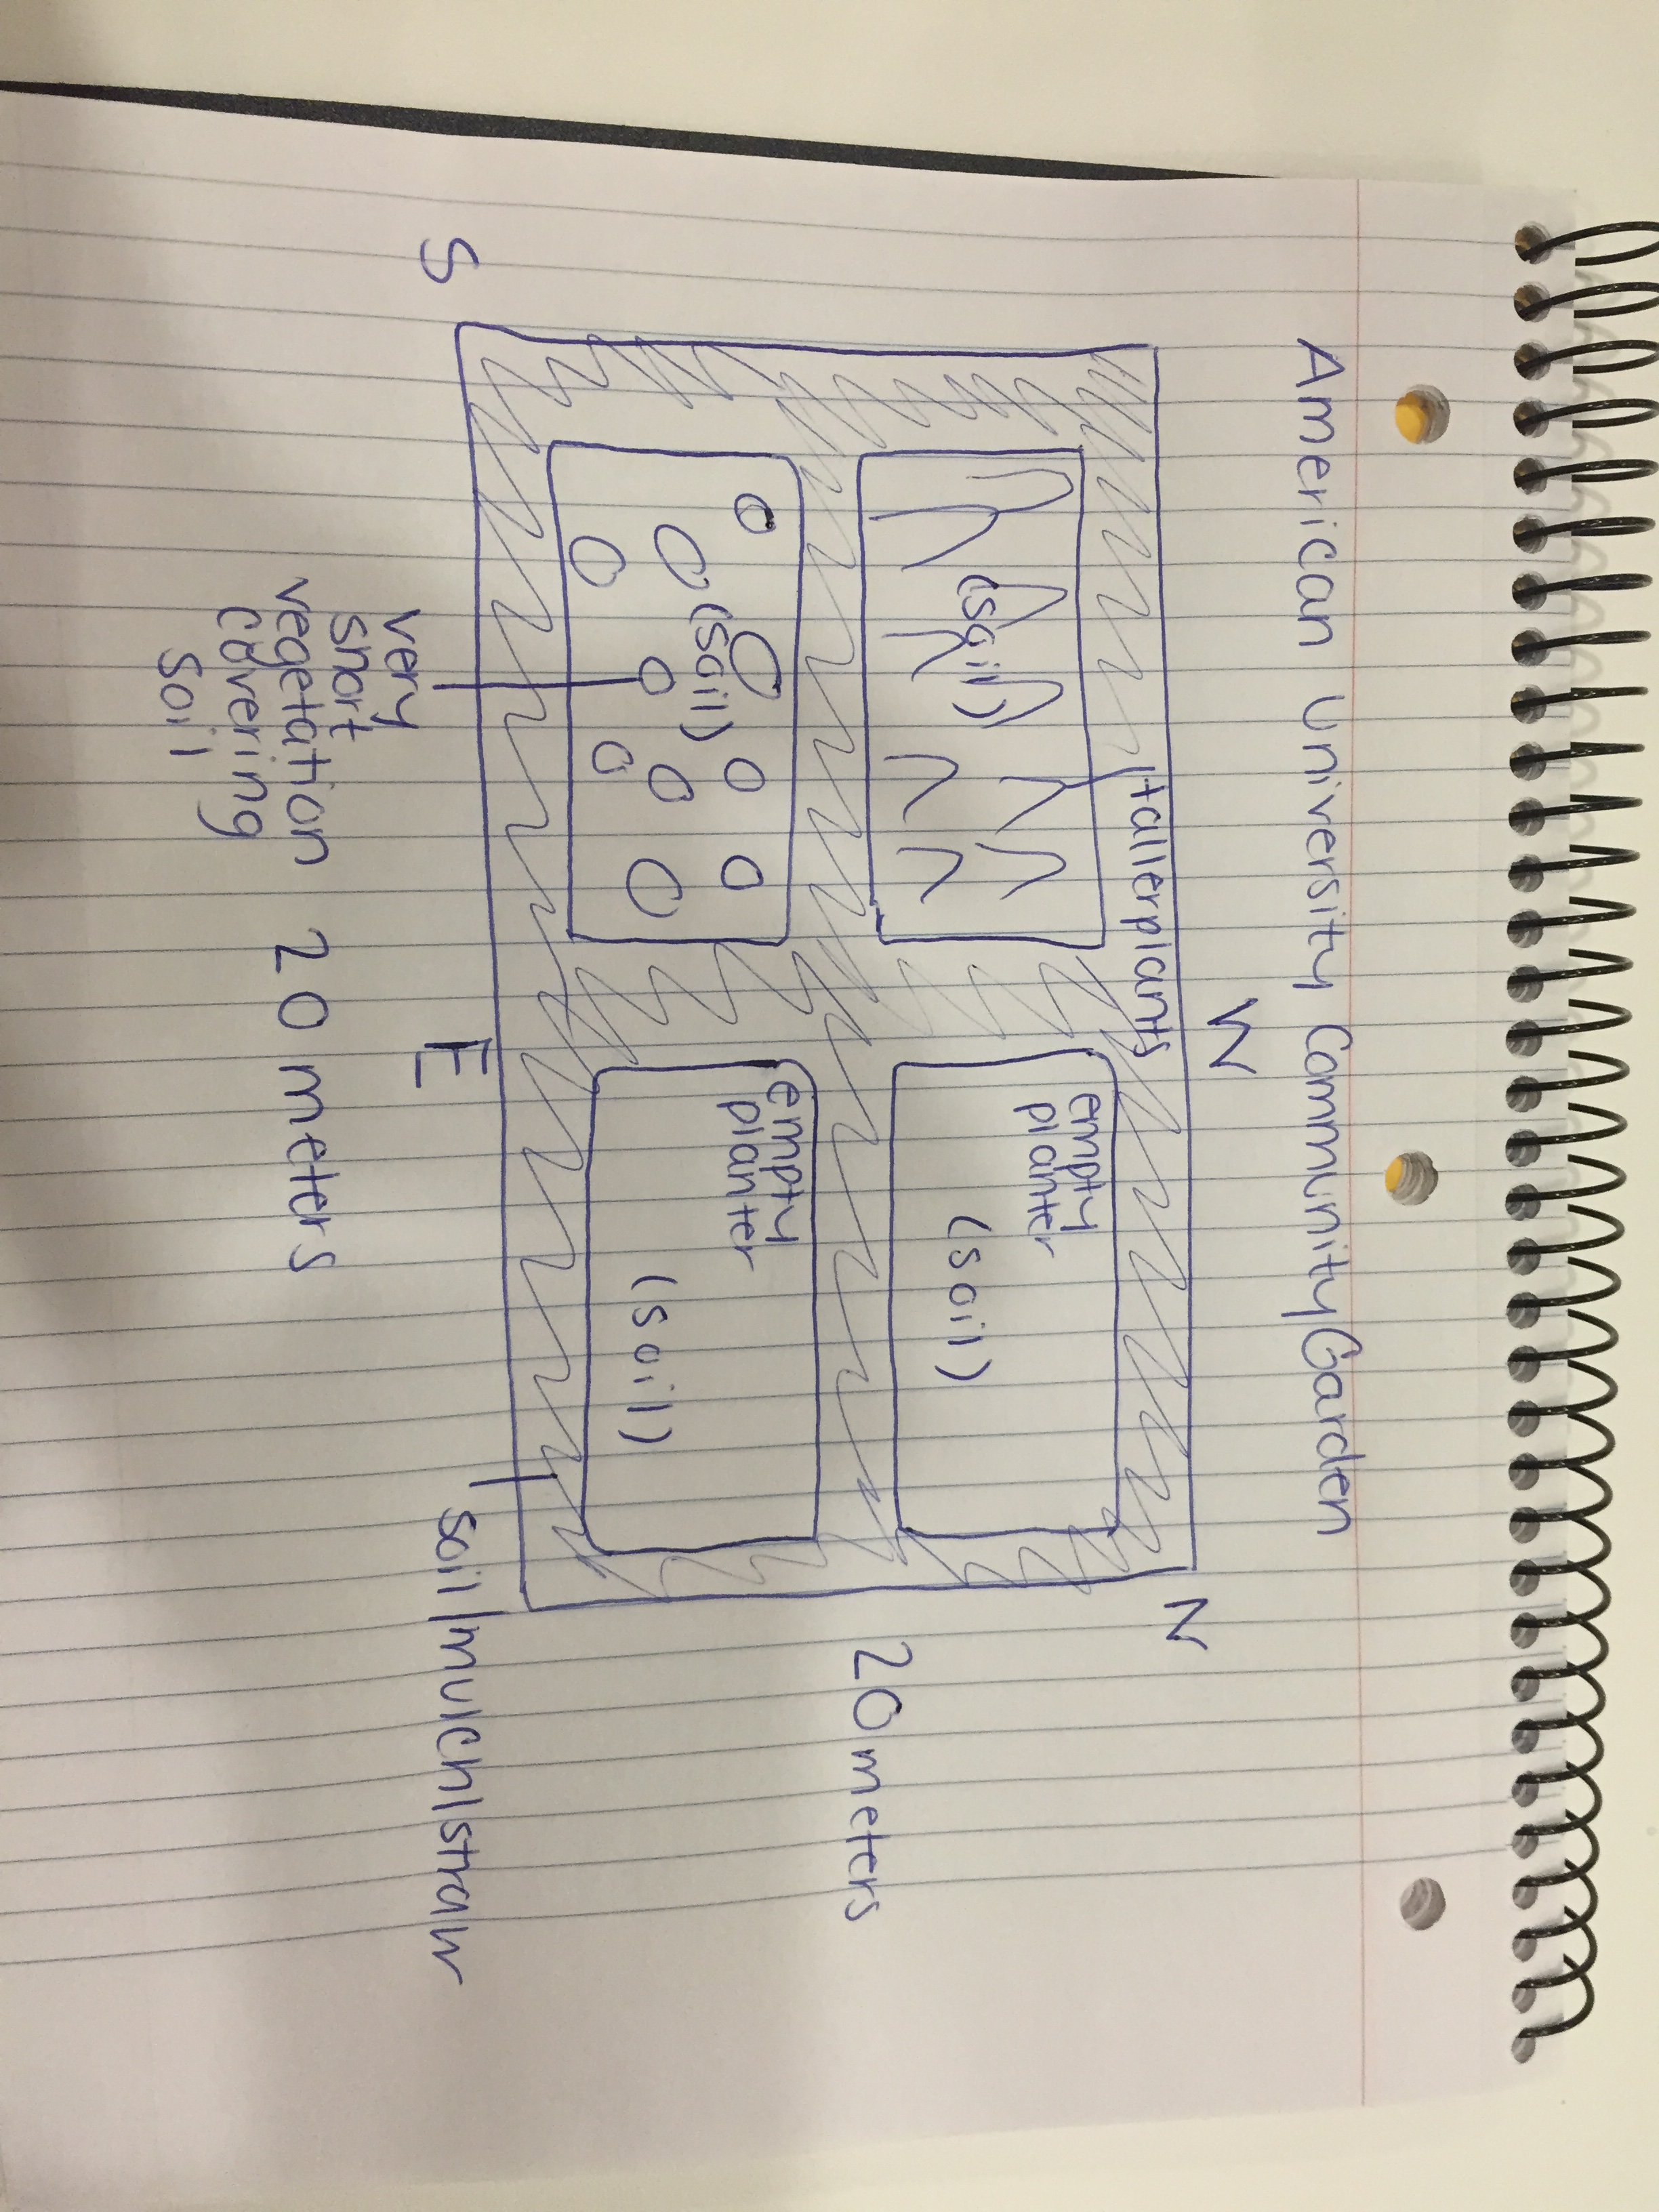 American University Community Garden
W
N
tallerplants
(soil)
empty
planter
(soil)
20 meters
(soil)
empty
planter
(soil)
S
E
very
short
vegetation
covering
soil
20 meters
soil/mulch/straw